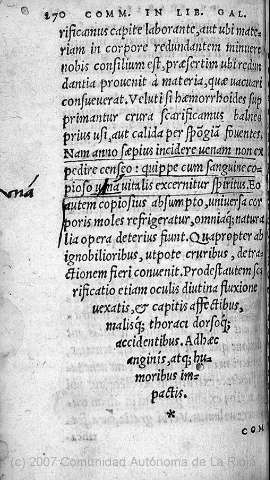 270 COMM. IN LIB. GAL.
rificamus capite laborante, aut ubi mate⸗
riam in corpore redundantem minuere
nobis consilium est, præsertim ubi redun
dantia prouenit à materia, quæ vacuari
consueuerat. Veluti si hæmorrhoides sup
primantur crura scarificamus balneo
prius usi, aut calida per spõgiã fouentes.
Nam anno sæpius incidere venam non ex
pedire censeo: quippe cum sanguine co⸗
pioso unà vitalis excernitur spiritus. Eo
nã
autem copiosius absumpto, uniuersa cor
poris moles refrigeratur, omniaq; natura
lia opera deterius fiunt. Quapropter ab
ignobilioribus, utpote cruribus, detra⸗
ctionem fieri conuenit. Prodest autem sca
rificatio etiam oculis diutina fluxione
vexatis, & capitis affectibus,
malisq; thoraci dorsoq;
accidentibus. Ad hæc
anginis, atq; hu⸗
moribus im⸗
pactis.
*
COM
(c) 2007 Comunidad Autónoma de La Rioja